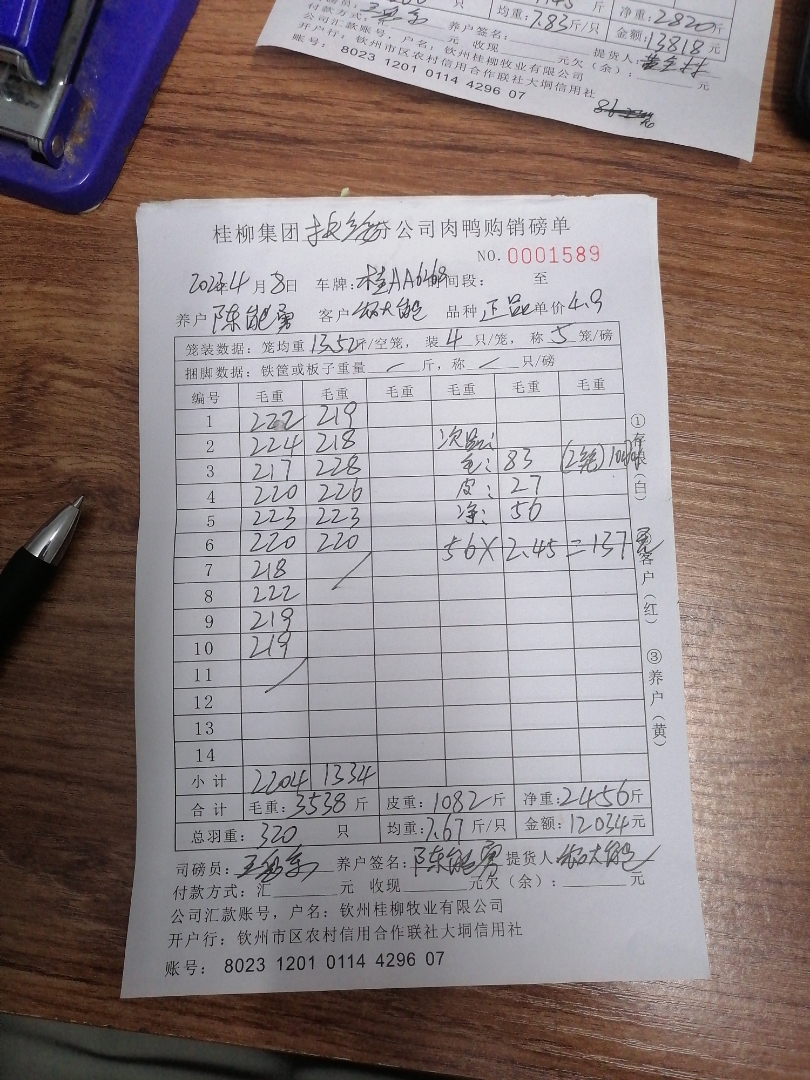 均重:7.83斤/只 净重:2820斤
付款方式: 元 养户签名: 金额:13818元
公司汇款账号,户名:钦州桂柳牧业有限公司 收现 元欠(余): 元 提货人:
开户行:钦州市区农村信用合作联社大垌信用社
账号: 8023 1201 0114 4296 07
桂柳集团 分公司肉鸭购销磅单
NO. 0001589
4月8日 车牌:桂AA6468 时间段: 至
养户 陈能勇 客户 品种 正品 单价4.9
笼装数据:笼均重13.52斤/空笼,装4只/笼,称5笼/磅
捆脚数据:铁筐或板子重量 / 斤,称 / 只/磅
编号 毛重 毛重 毛重 毛重 毛重 毛重
1 222 219
2 224 218 次品:
3 217 228 毛: 83
4 220 226 皮: 27
5 223 223 净: 56
6 220 220 56×2.45=137元
7 218
8 222
9 219
10 219
11
12
13
14
小计 2204 1334
合计 毛重:3538斤 皮重:1082斤 净重:2456斤
总羽重:320 只 均重:7.67斤/只 金额:12034元
司磅员: 养户签名:陈能勇 提货人
付款方式:汇 元 收现 元欠(余): 元
公司汇款账号,户名:钦州桂柳牧业有限公司
开户行:钦州市区农村信用合作联社大垌信用社
账号: 8023 1201 0114 4296 07
①存根(白)
客户(红)
③养户(黄)